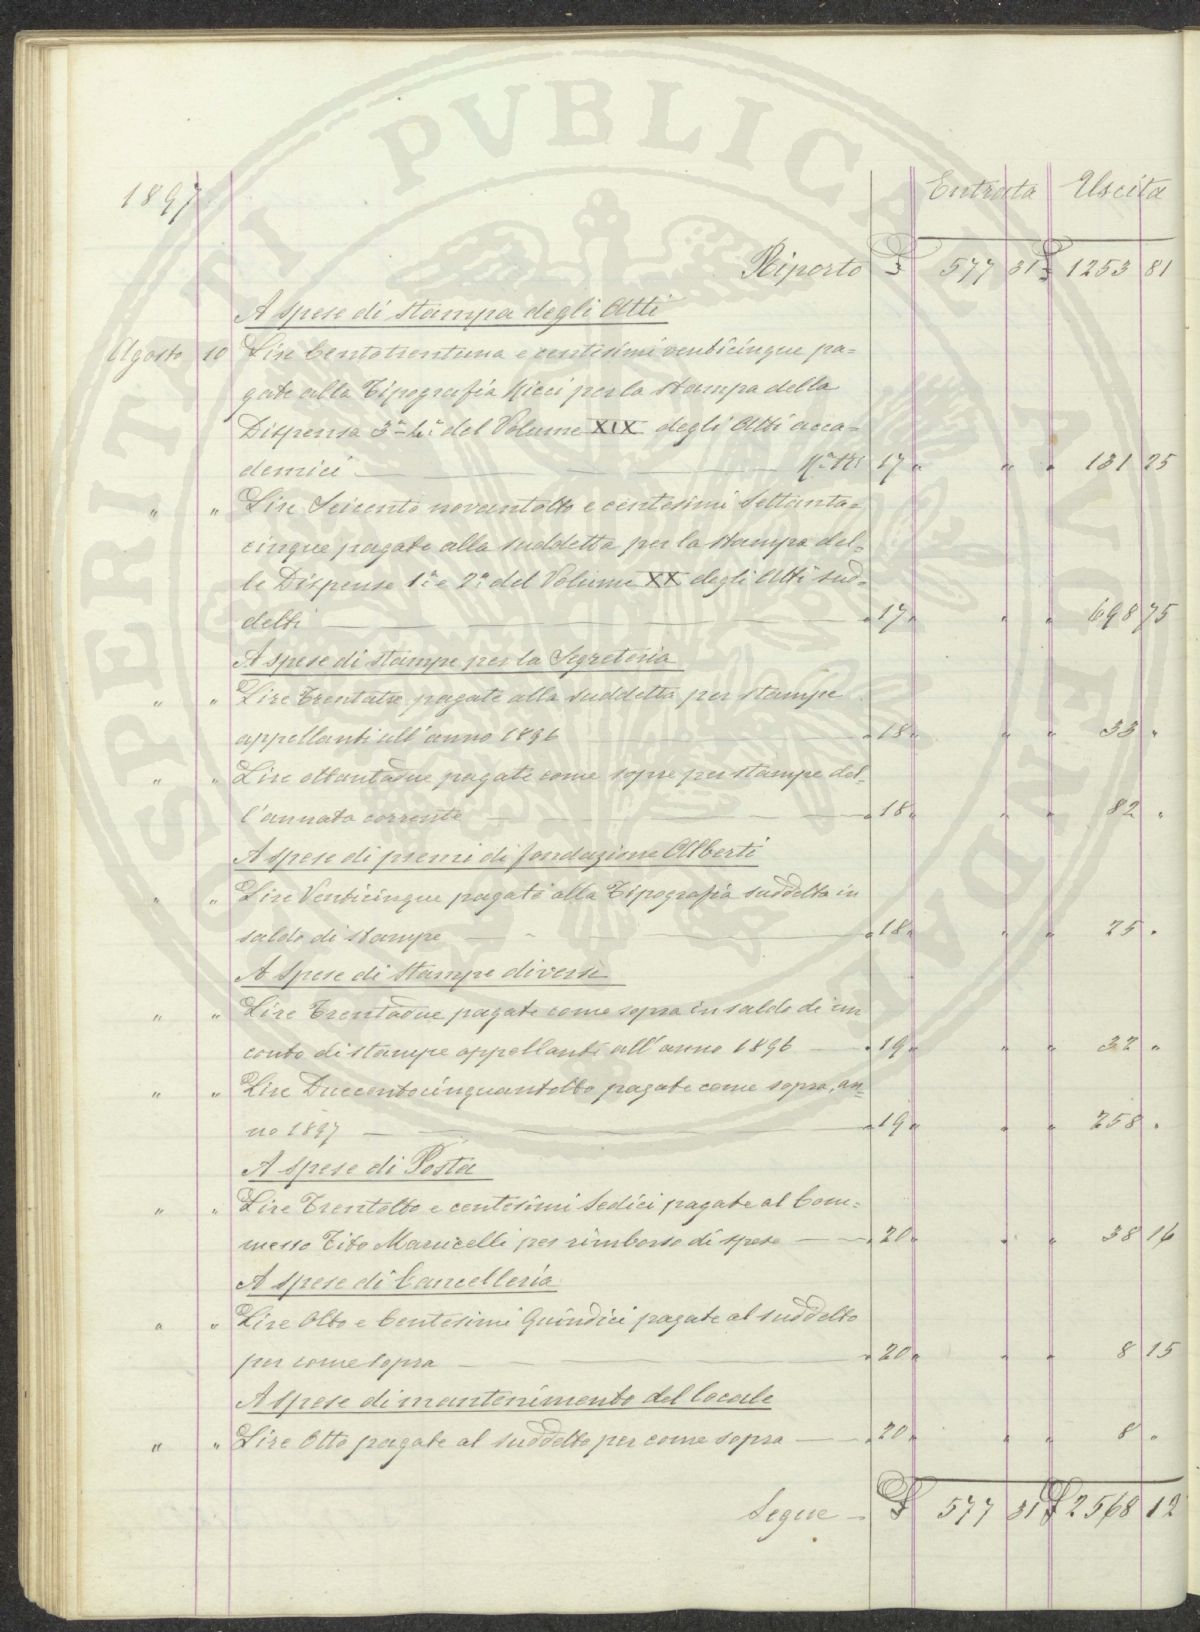 1897
Entrata Uscita
Riporto £ 577 31 £ 1253 81
A spese di stampa degli Atti
Agosto 10 Lire Centotrentuna e centesimi venticinque pa=
gate alla Tipografia Ricci per la stampa della
Dispensa 3ª-4ª del Volume XIX degli Atti acca=
demici — 17 " " " 131 25
" " Lire Seicento novantotto e centesimi Settanta=
cinque pagate alla suddetta per la stampa del=
le Dispense 1ª e 2ª del Volume XX degli Atti sud=
detti — " 17 " " " 698 75
A spese di stampe per la Segreteria
" " Lire Trentatre pagate alla suddetta per stampe
appellanti all'anno 1896 — " 18 " " " 33 "
" " Lire ottantadue pagate come sopra per stampe del=
l'annata corrente — " 18 " " " 82 "
A spese di premi di fondazione Alberti
" " Lire Venticinque pagate alla Tipografia suddetta in
saldo di stampe — " 18 " " " 25 "
A spese di stampe diverse
" " Lire Trentadue pagate come sopra in saldo di un
conto di stampe appellanti all'anno 1896 — " 19 " " " 32 "
" " Lire Duecentocinquantotto pagate come sopra, an=
no 1897 — " 19 " " " 258 "
A spese di Posta
" " Lire Trentotto e centesimi Sedici pagate al Com=
messo Tito Marucelli per rimborso di spese — " 20 " " " 38 16
A spese di Cancelleria
" " Lire Otto e Centesimi Quindici pagate al suddetto
per come sopra — " 20 " " " 8 15
A spese di mantenimento del locale
" " Lire Otto pagate al suddetto per come sopra — " 20 " " " 8 "
Segue — £ 577 31 £ 2568 12
PROSPERITATI PVBLICAE AVGENDAE